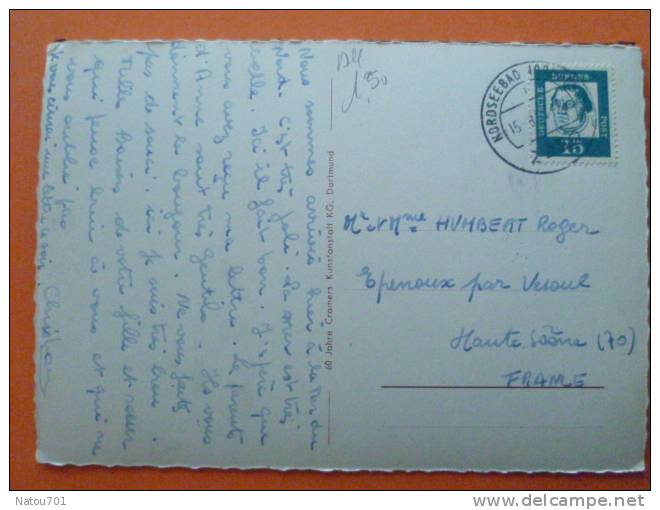 Nous sommes arrivés hier à la mer du
Nord. C'est très joli. La mer est très
belle. Ici il fait bon. J'espère que
vous avez reçu ma lettre. Les parents
d'Anne sont très gentils. Ils vous
donnent le bonjour. Ne vous faites
pas de souci. Ici je suis très bien.
Mille baisers de votre fille et sœur
qui pense bien à vous et qui ne
vous oublie pas
Je vous écrirai une lettre ce soir. Christian
1.50
60 Jahre Cramers Kunstanstalt KG, Dortmund
NORDSEEBAD
15
DÜRERS
DEUTSCHE
POST
15
Mr & Mme HUMBERT Roger
Epenoux par Vesoul
Haute Saône (70)
FRANCE
Natou701
delcampe.net